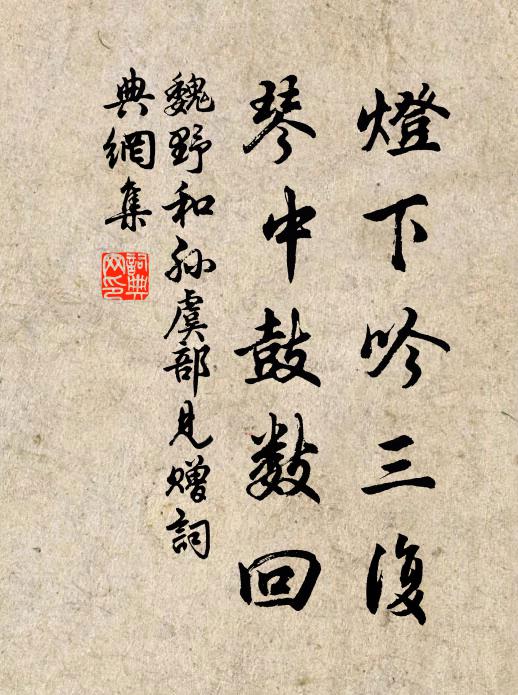 燈下吟三復
琴中鼓數回
魏野和孙虞部見贈詞
典網集
詞典网印